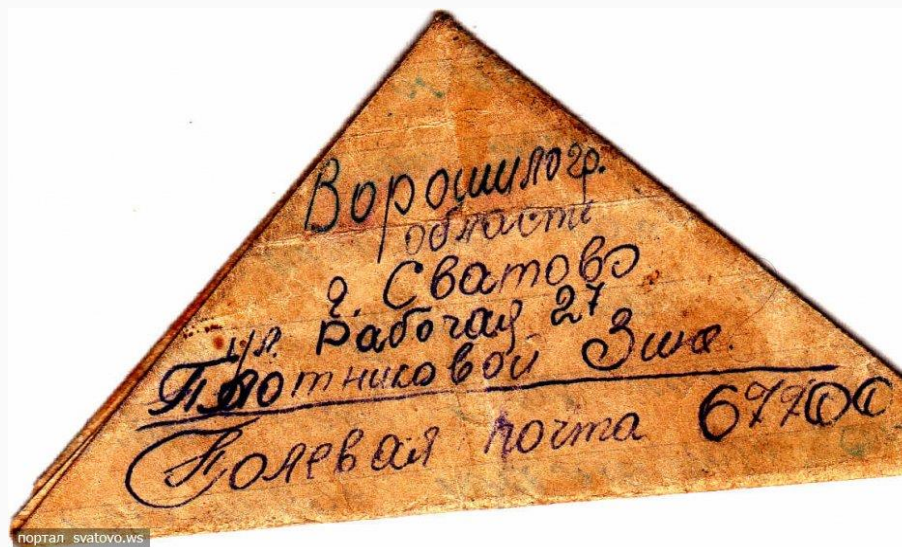 Ворошилогр.
область
г. Сватово
ул. Рабочая 27
Плотниковой Зине.
Полевая почта 67700
портал svatovo.ws